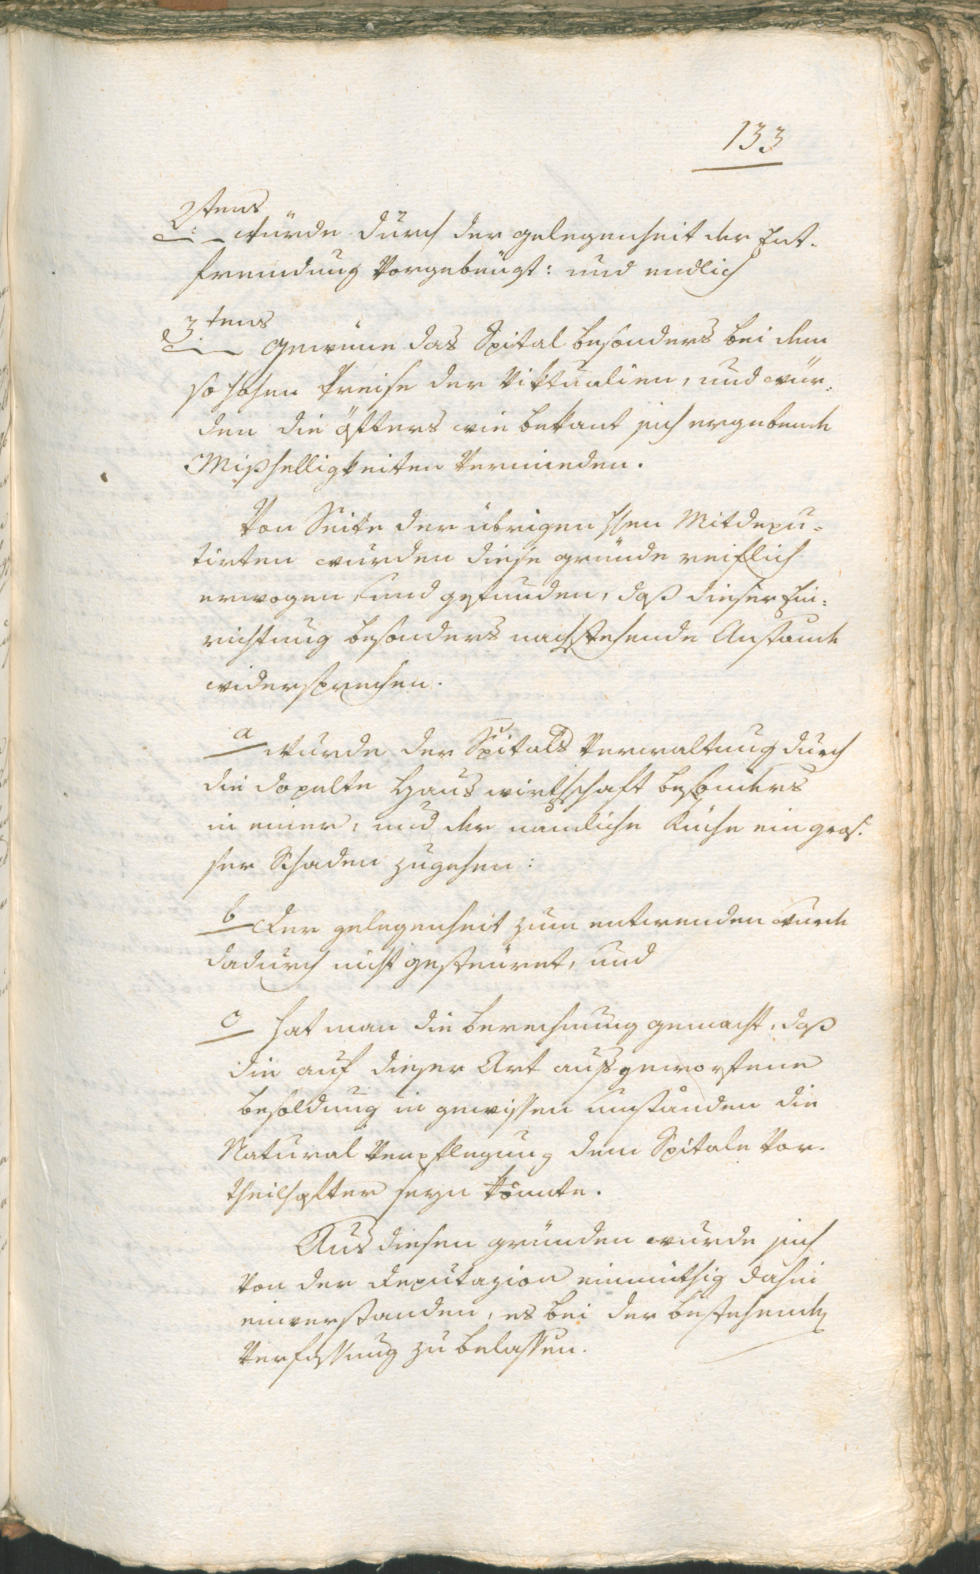 133
2tens
würde durch der gelegenheit der Ent-
fremdung Vorgebeugt: und endlich
3tens
Gewinne das Spital besonders bei dem
so hohen Preise der Viktualien, und wür-
den die öffters wie bekant sich ergebende
Mißhelligkeiten Vermieden.
Von Seite der übrigen Hrn Mitdepu-
tirten wurden diese gründe reiflich
erwogen, und gefunden, daß dieser Ein-
richtung besonders nachstehende Anstände
widersprechen.
a wurde der Spitals Verwaltung durch
die dopelte Hauswirthschaft besonders
in einer, und der nämliche Küche ein gros-
ser Schaden zugehen:
b Der gelegenheit zum entwenden wurde
dadurch nicht gesteuret, und
c hat man die berechnung gemacht, daß
die auf dieser Art ausgeworfene
besoldung in gewissen umständen die
Natural Verpflegung dem Spitale Vor-
theilhafter seyn könnte.
Aus diesen gründen wurde sich
von der Deputazion einmüthig dahin
einverstanden, es bei der bestehenden
Verfassung zu belassen.